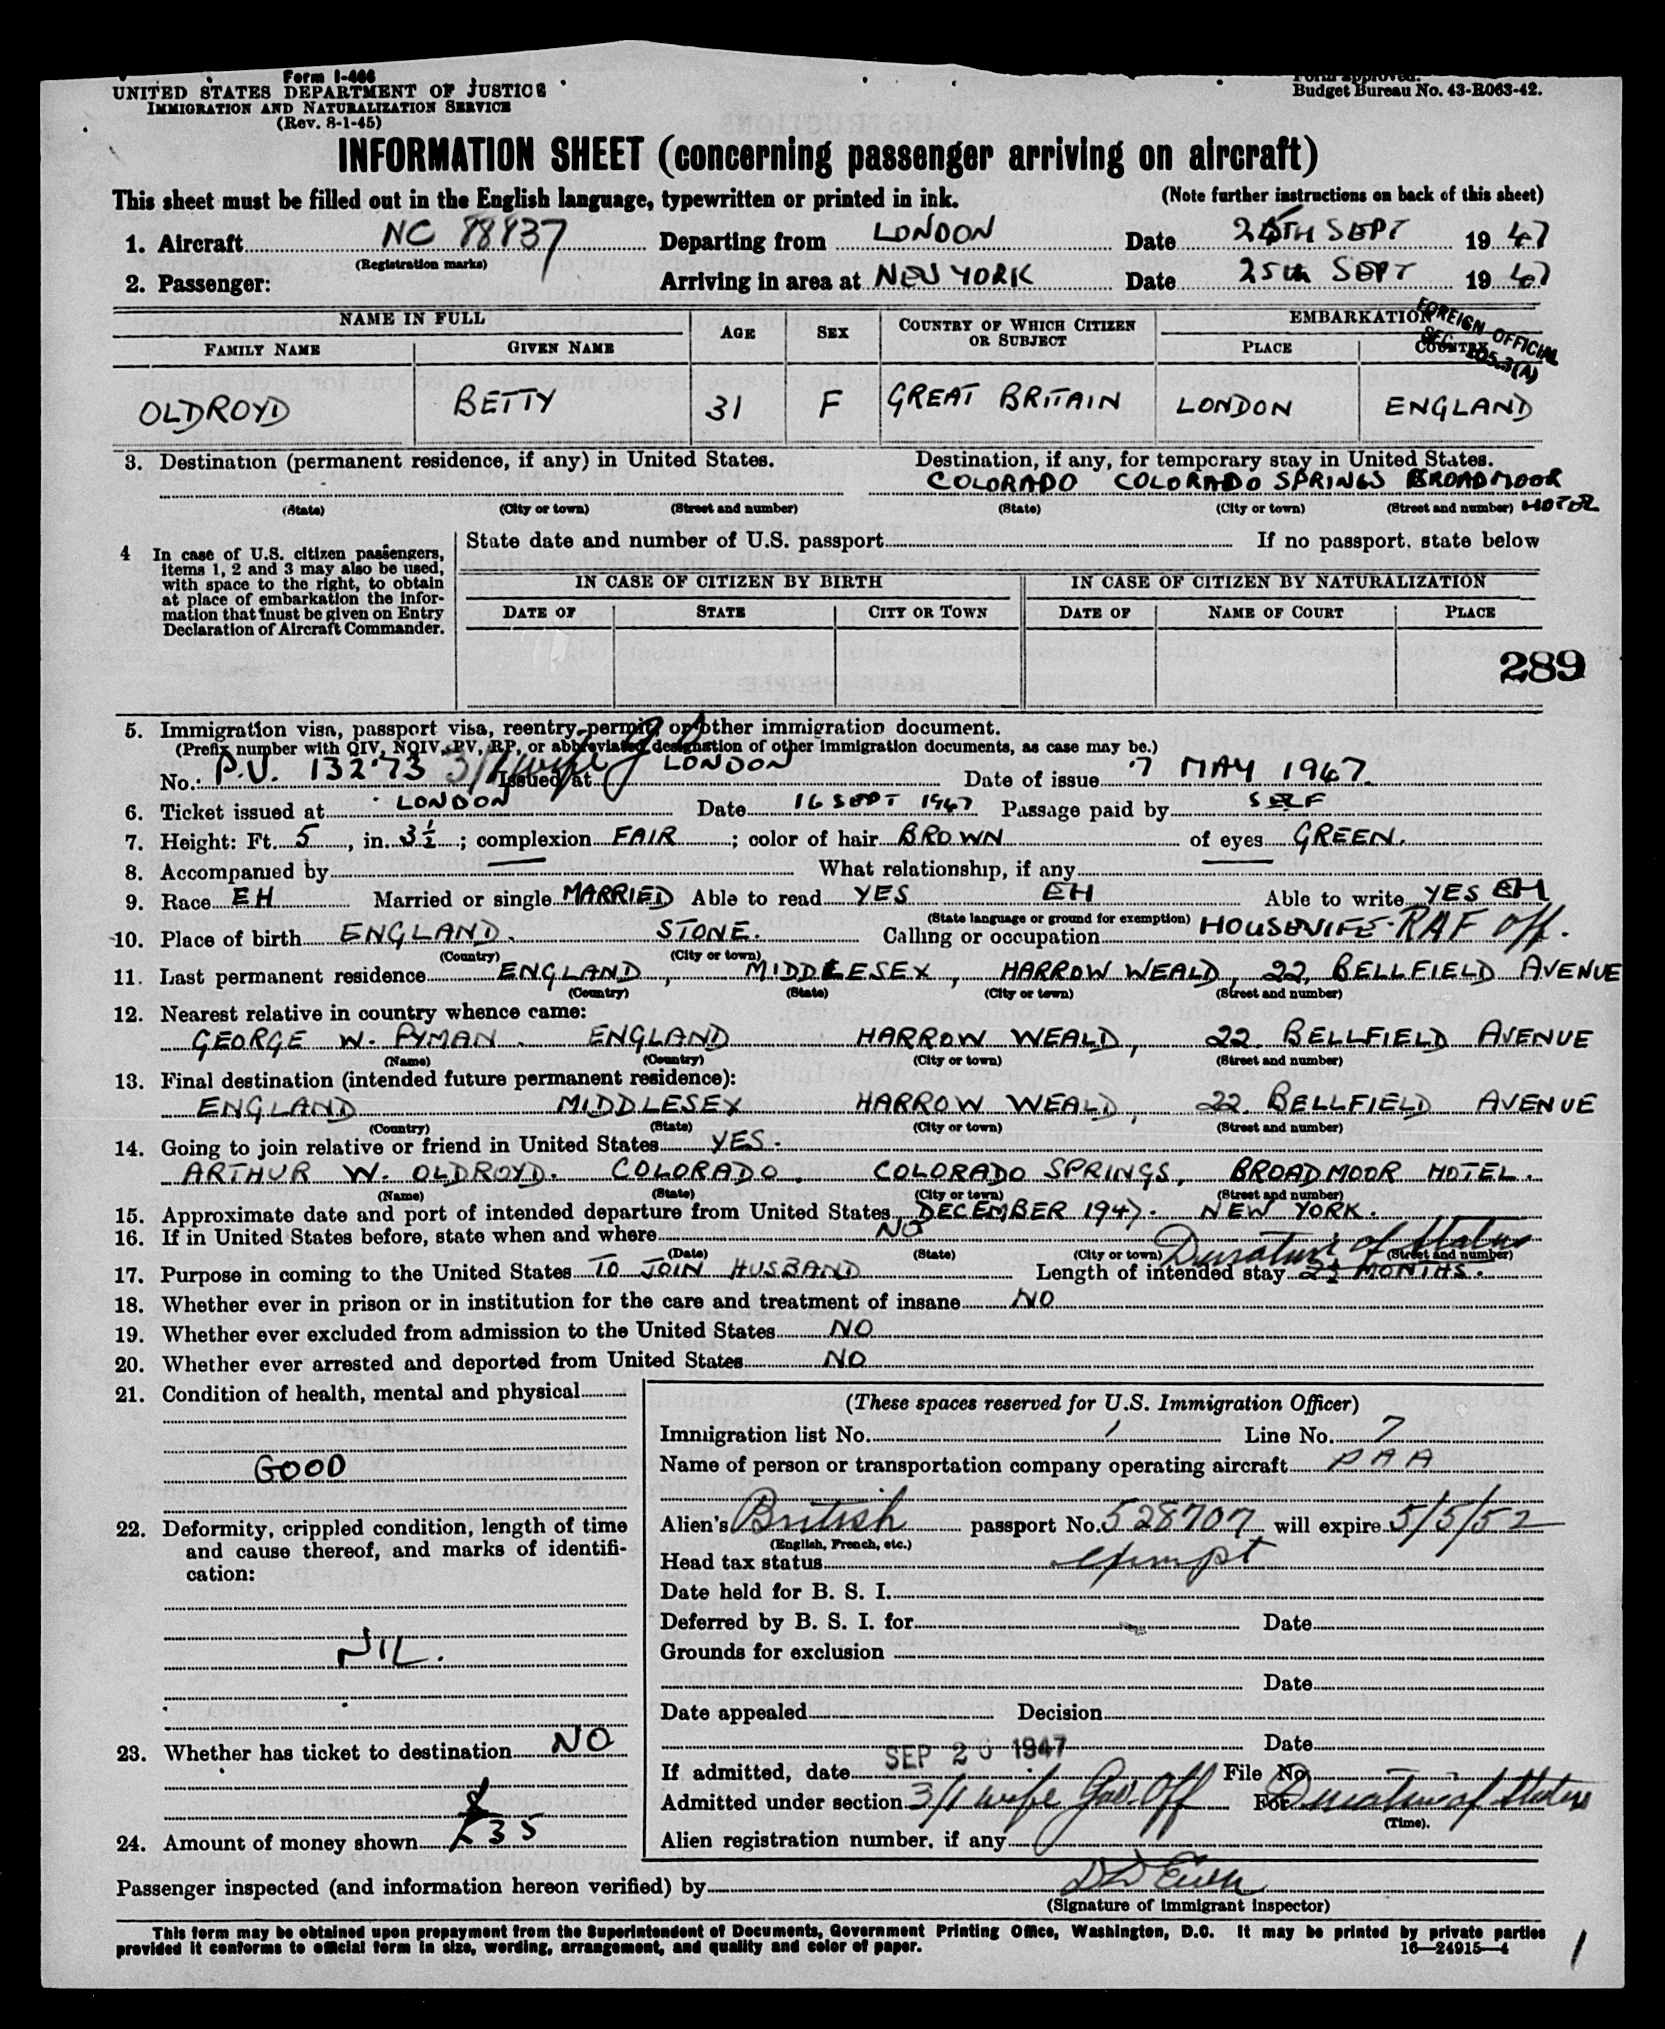 Form I-466
UNITED STATES DEPARTMENT OF JUSTICE
IMMIGRATION AND NATURALIZATION SERVICE
(Rev. 8-1-45)
Form approved.
Budget Bureau No. 43-R063-42.
INFORMATION SHEET (concerning passenger arriving on aircraft)
This sheet must be filled out in the English language, typewritten or printed in ink. (Note further instructions on back of this sheet)
1. Aircraft NC 88837 Departing from LONDON Date 25TH SEPT 1947
(Registration marks)
2. Passenger: Arriving in area at NEW YORK Date 25th SEPT 1947
NAME IN FULL AGE SEX COUNTRY OF WHICH CITIZEN OR SUBJECT EMBARKATION
FAMILY NAME GIVEN NAME PLACE COUNTRY
FOREIGN OFFICIAL
SEC. 105.3(A)
OLDROYD BETTY 31 F GREAT BRITAIN LONDON ENGLAND
3. Destination (permanent residence, if any) in United States. Destination, if any, for temporary stay in United States.
COLORADO COLORADO SPRINGS BROADMOOR HOTEL
(State) (City or town) (Street and number) (State) (City or town) (Street and number)
4 In case of U.S. citizen passengers, items 1, 2 and 3 may also be used, with space to the right, to obtain at place of embarkation the information that must be given on Entry Declaration of Aircraft Commander.
State date and number of U.S. passport If no passport, state below
IN CASE OF CITIZEN BY BIRTH IN CASE OF CITIZEN BY NATURALIZATION
DATE OF STATE CITY OR TOWN DATE OF NAME OF COURT PLACE
289
5. Immigration visa, passport visa, reentry permit, or other immigration document.
(Prefix number with QIV, NQIV, PV, RP, or abbreviated designation of other immigration documents, as case may be.)
No.: P.V. 13273 3/1 wife Issued at LONDON Date of issue 7 MAY 1947
6. Ticket issued at LONDON Date 16 SEPT 1947 Passage paid by SELF
7. Height: Ft. 5, in. 3½; complexion FAIR; color of hair BROWN of eyes GREEN.
8. Accompanied by — What relationship, if any —
9. Race EH Married or single MARRIED Able to read YES EH Able to write YES EH
(State language or ground for exemption)
10. Place of birth ENGLAND. STONE. Calling or occupation HOUSEWIFE - RAF Off.
(Country) (City or town)
11. Last permanent residence ENGLAND, MIDDLESEX, HARROW WEALD, 22, BELLFIELD AVENUE
(Country) (State) (City or town) (Street and number)
12. Nearest relative in country whence came:
GEORGE W. PYMAN. ENGLAND HARROW WEALD, 22 BELLFIELD AVENUE
(Name) (Country) (City or town) (Street and number)
13. Final destination (intended future permanent residence):
ENGLAND MIDDLESEX HARROW WEALD, 22 BELLFIELD AVENUE
(Country) (State) (City or town) (Street and number)
14. Going to join relative or friend in United States YES.
ARTHUR W. OLDROYD. COLORADO. COLORADO SPRINGS, BROADMOOR HOTEL.
(Name) (State) (City or town) (Street and number)
15. Approximate date and port of intended departure from United States DECEMBER 1947. NEW YORK.
16. If in United States before, state when and where NO
(Date) (State) (City or town) (Street and number)
Duration of Status
17. Purpose in coming to the United States TO JOIN HUSBAND Length of intended stay 2½ MONTHS.
18. Whether ever in prison or in institution for the care and treatment of insane NO
19. Whether ever excluded from admission to the United States NO
20. Whether ever arrested and deported from United States NO
21. Condition of health, mental and physical
GOOD
22. Deformity, crippled condition, length of time and cause thereof, and marks of identification:
NIL.
23. Whether has ticket to destination NO
24. Amount of money shown £35
(These spaces reserved for U.S. Immigration Officer)
Immigration list No. 1 Line No. 7
Name of person or transportation company operating aircraft PAA
Alien's British passport No. 528707 will expire 5/5/52
(English, French, etc.)
Head tax status exempt
Date held for B. S. I.
Deferred by B. S. I. for Date
Grounds for exclusion
Date
Date appealed Decision
Date
If admitted, date SEP 26 1947 File No
Admitted under section 3/1 wife Gov. Off For Duration of Status
(Time).
Alien registration number, if any
Passenger inspected (and information hereon verified) by
(Signature of immigrant inspector)
This form may be obtained upon prepayment from the Superintendent of Documents, Government Printing Office, Washington, D.C. It may be printed by private parties
provided it conforms to official form in size, wording, arrangement, and quality and color of paper. 16—24915—4
1